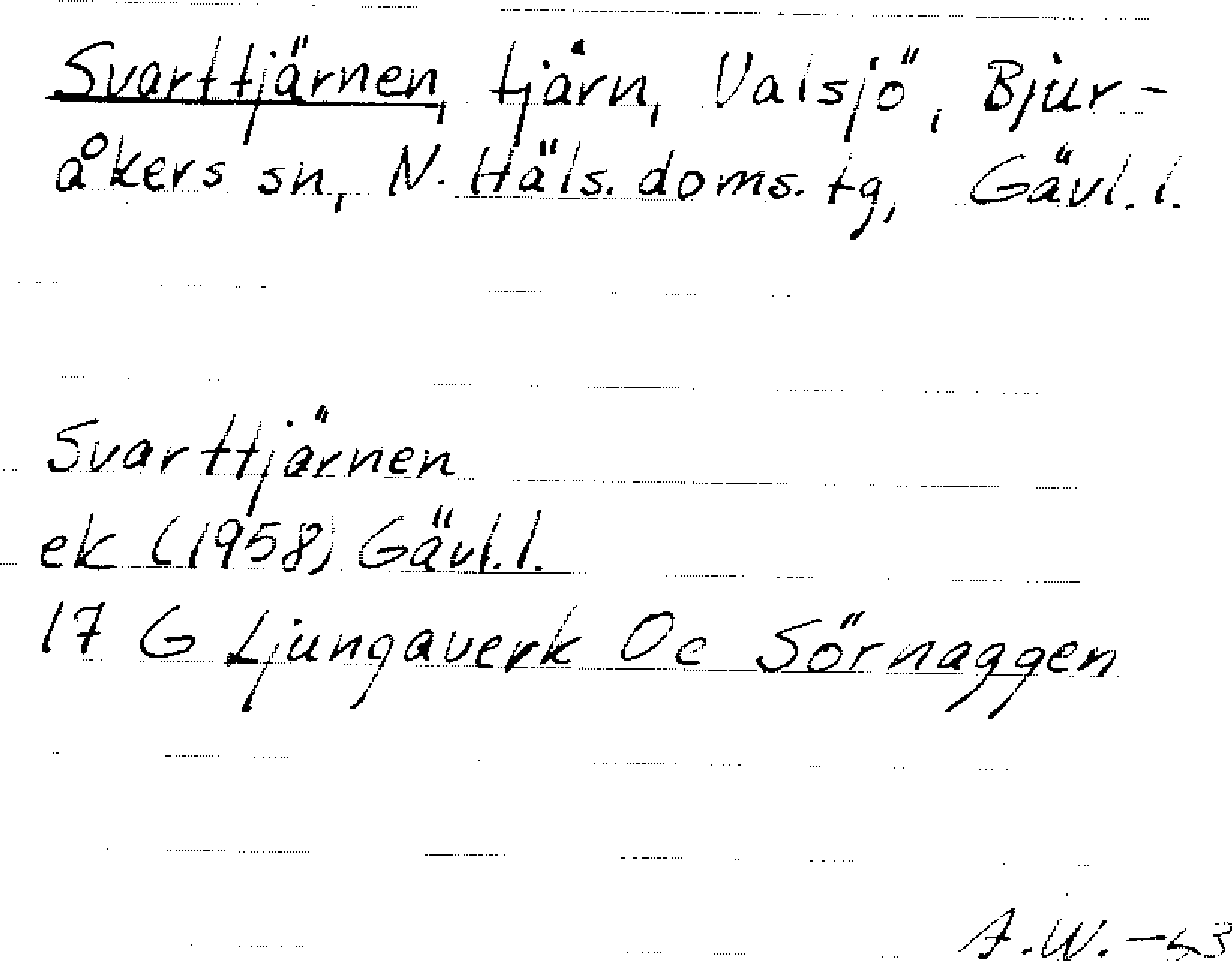 Svarttjärnen, tjärn, Valsjö, Bjur-
åkers sn, N. Häls. doms. tg, Gävl. l.
Svarttjärnen
ek (1958) Gävl. l.
17 G Ljungaverk Oc Sörnaggen
A.W.